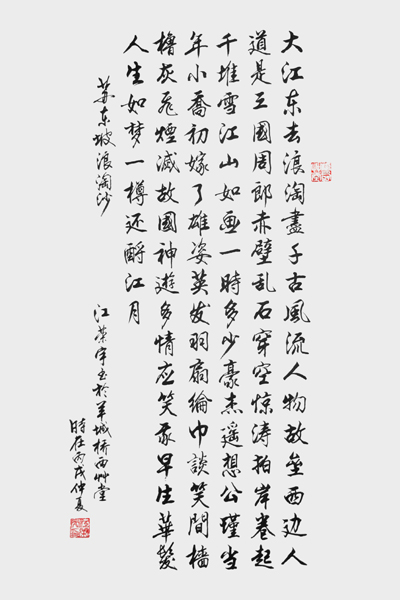 大江东去浪淘盡千古風流人物故垒西边人
道是三國周郎赤壁乱石穿空惊涛拍岸卷起
千堆雪江山如画一時多少豪杰遥想公瑾当
年小喬初嫁了雄姿英发羽扇綸巾談笑間檣
櫓灰飛煙滅故國神遊多情应笑我早生華髮
人生如梦一樽还酹江月
蘇东坡浪淘沙
江荣宇书於羊城桥西艸堂
時在丙戌仲夏